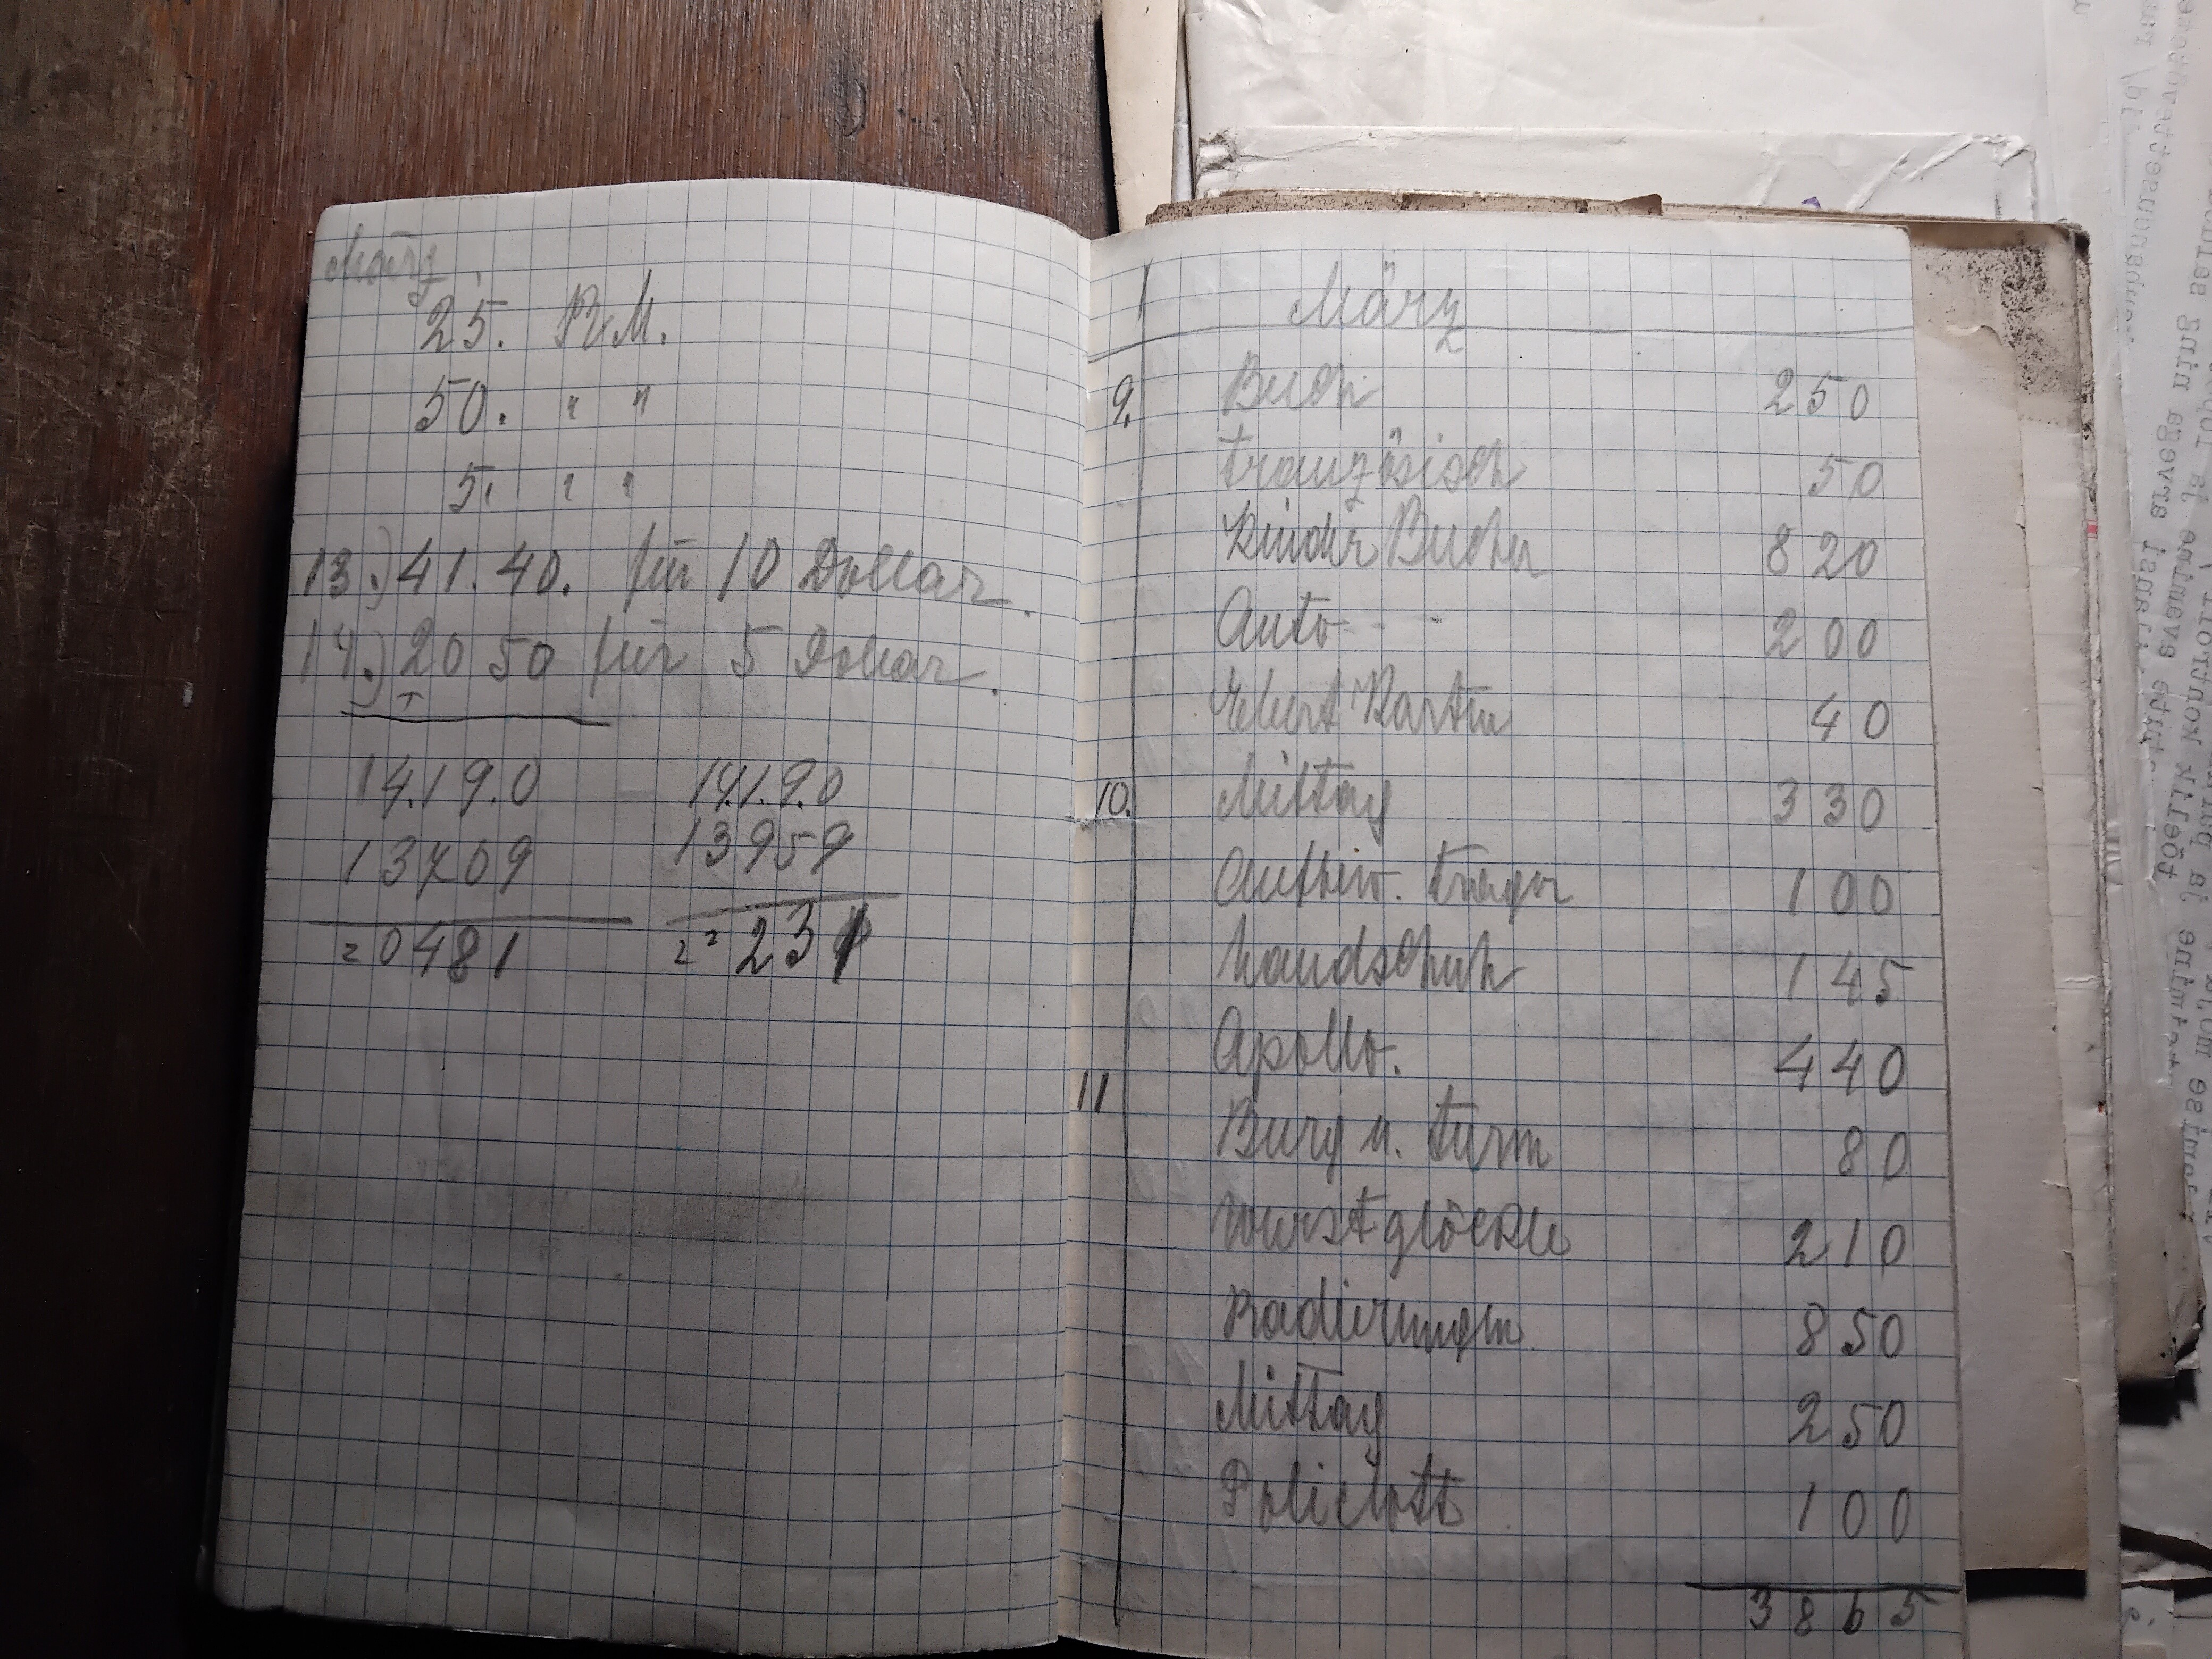 März
25. R.M.
50. " "
5. " "
13.) 41.40. für 10 Dollar.
14.) 20 50 für 5 Dollar.
14.19.0 14.1.9.0
13709 13959
20481 22231
März
9. Buch 250
französisch 50
Kinder Bucher 820
Auto - - - 200
40
10. Mittag 330
100
handschuh 145
Apollo. 440
11 Burg u. turm 80
wurst glöckle 210
Radierungen 850
Mittag 250
100
3865